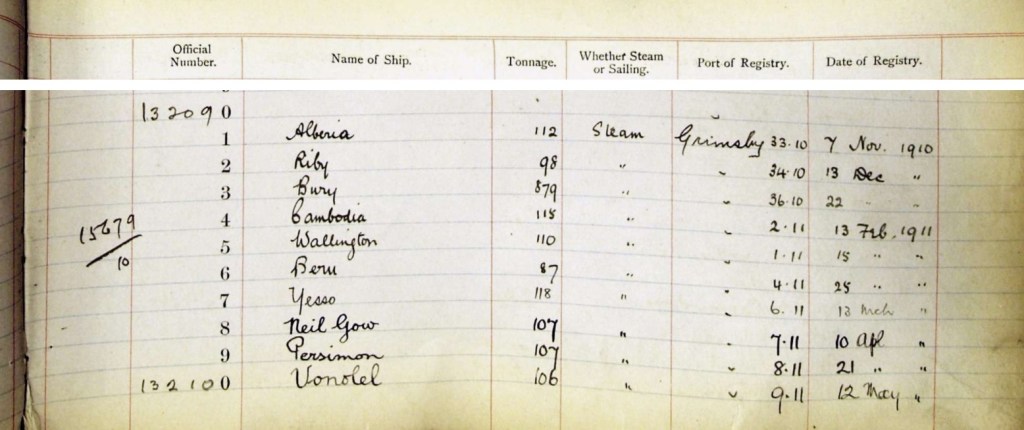 Official Number. Name of Ship. Tonnage. Whether Steam or Sailing. Port of Registry. Date of Registry.
132090
1 Alberia 112 Steam Grimsby 33.10 7 Nov. 1910
2 Riby 98 " " 34.10 13 Dec "
3 Bury 879 " " 36.10 22 " "
4 Cambodia 115 " " 2.11 13 Feb. 1911
15679/10
5 Wallington 110 " " 1.11 15 " "
6 Beru 87 " " 4.11 25 " "
7 Yesso 118 " " 6.11 13 Mch "
8 Neil Gow 107 " " 7.11 10 Apl "
9 Persimon 107 " " 8.11 21 " "
132100 Vonolel 106 " " 9.11 12 May "